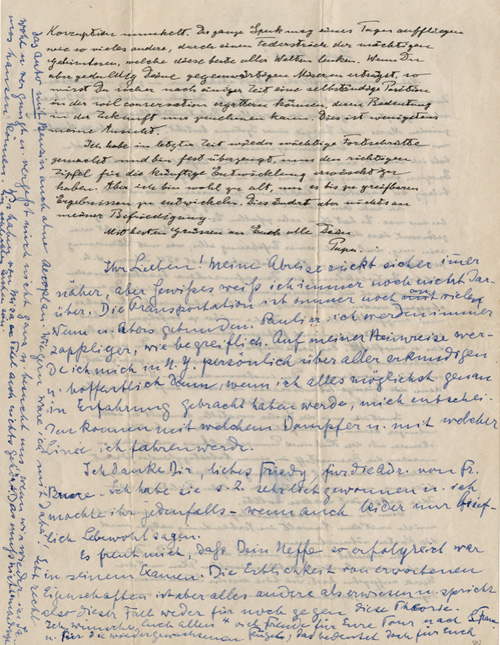 Korruption munkelt. Der ganze Spuk mag eines Tages auffliegen
wie so vieles andere, durch einen Federstrich der mächtigen
Gehirnlosen, welche dieses beste aller Welten lenken. Wenn Du
aber geduldig Deine gegenwärtigen Miseren erträgst, so
wirst Du sicher nach einiger Zeit eine selbständige Position
in der soil conservation ergattern können, deren Bedeutung
in der Zukunft nur zunehmen kann. Dies ist wenigstens
meine Ansicht.
Ich habe in letzter Zeit wieder wichtige Fortschritte
gemacht und bin fest überzeugt, nun den richtigen
Zipfel für die künftige Entwicklung erwischt zu
haben. Aber ich bin wohl zu alt, um es bis zu greifbaren
Ergebnissen zu entwickeln. Dies ändert aber nichts an
meiner Befriedigung.
Mit besten Grüssen an Euch alle Dein
Papa.
Ihr Lieben! Meine Abreise rückt sicher immer
näher, aber Gewisses weiß ich immer noch nicht dar-
über. Die Transportation ist immer noch mit vielen
Wenn u. Abers gebunden. Paul u. ich werden immer
zappliger, wie begreiflich. Auf meiner Heimreise wer-
de ich mich in N.Y. persönlich über alles erkundigen
u. hoffentlich dann, wenn ich alles möglichst genau
in Erfahrung gebracht haben werde, mich entschei-
den können mit welchem Dampfer u. mit welcher
Linie ich fahren werde.
Ich danke Dir, liebes Friedy, für die Adr. von Fr.
Ich habe sie s. Z. sehr lieb gewonnen u. ich
möchte ihr jedenfalls – wenn auch leider nur brief-
lich Lebewohl sagen.
Es freut mich, daß Dein Neffe so erfolgreich war
in seinem Examen. Die Erblichkeit von erworbenen
Eigenschaften ist aber alles andere als erwiesen u. spricht
also dieser Fall weder für noch gegen diese Theorie.
Ich wünsche Euch allen viel Freude für Eure Tour nach
u. für die wiedergewachsenen Flügel, das bedeutet doch für Euch
das Auto mit Benzin auch ohne Aeroplan. Wie gern wäre ich mit dabei! Lebt recht
wohl u. vergnügt u. vergeßt mich nicht ganz u.